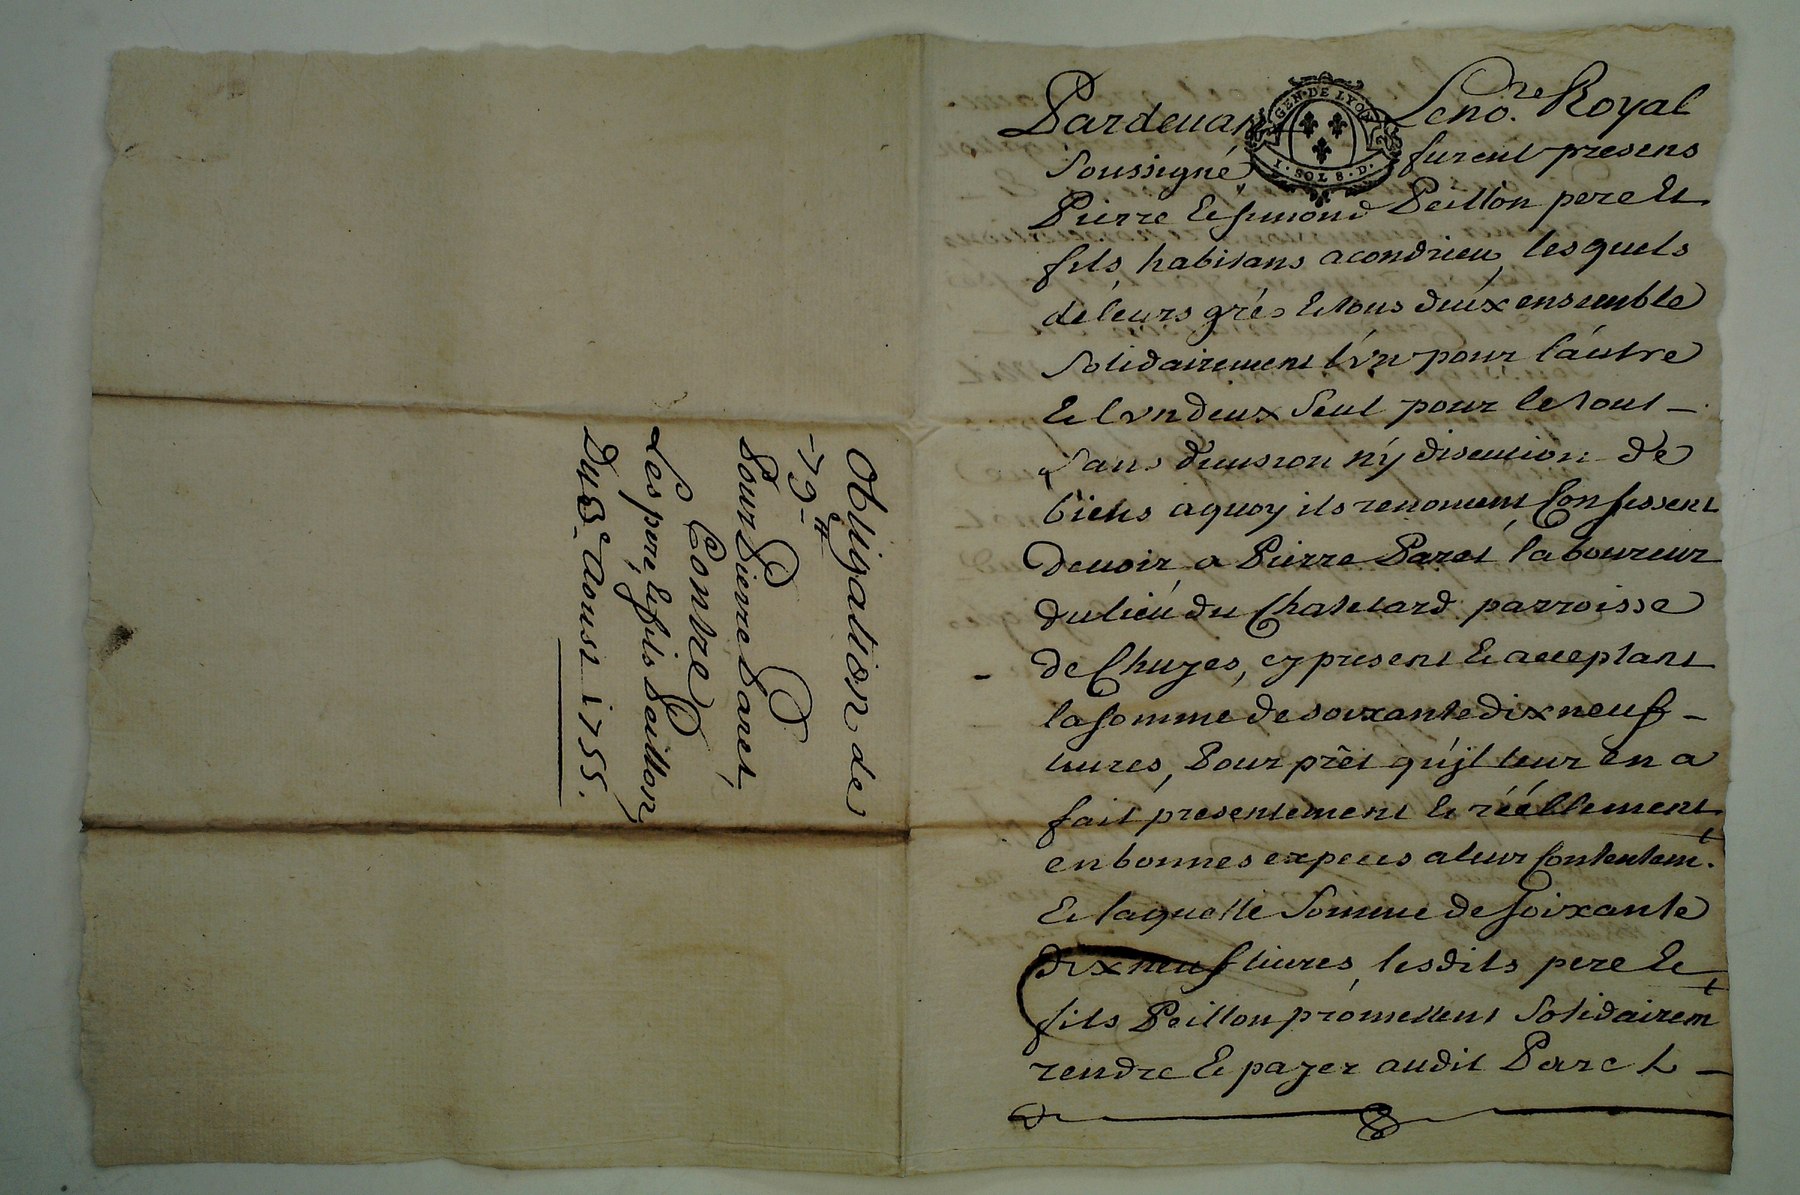 Obligation de
-79-lt
Pour Pierre Paret,
Contre
Les pere, & fils Peillon,
Du 3e aoust 1755.
Pardeuant Le no.re Royal
GEN. DE LYON
I. SOL 8. D.
soussigné, furent presens
Pierre & simond Peillon pere &
fils, habitans a condrieu, lesquels
de leurs grés & tous deux ensemble
solidairement l'vn pour l'autre
& l vn deux seul pour le tout -
sans diuision n'y discution de
biens a quoy ils renoncent Confessent
deuoir a Pierre Paret laboureur
du lieu du Chatelard parroisse
de Chuyes, cy present & acceptant
la somme de soixante dix neuf -
liures, Pour prêt qu'jl leur en a
fait presentement & réellement
en bonnes expeces a leur Contentem.t
& laquelle somme de soixante
dix neuf liures, lesdits pere &
fils Peillon promettent solidairem.t
rendre & payer audit Paret -